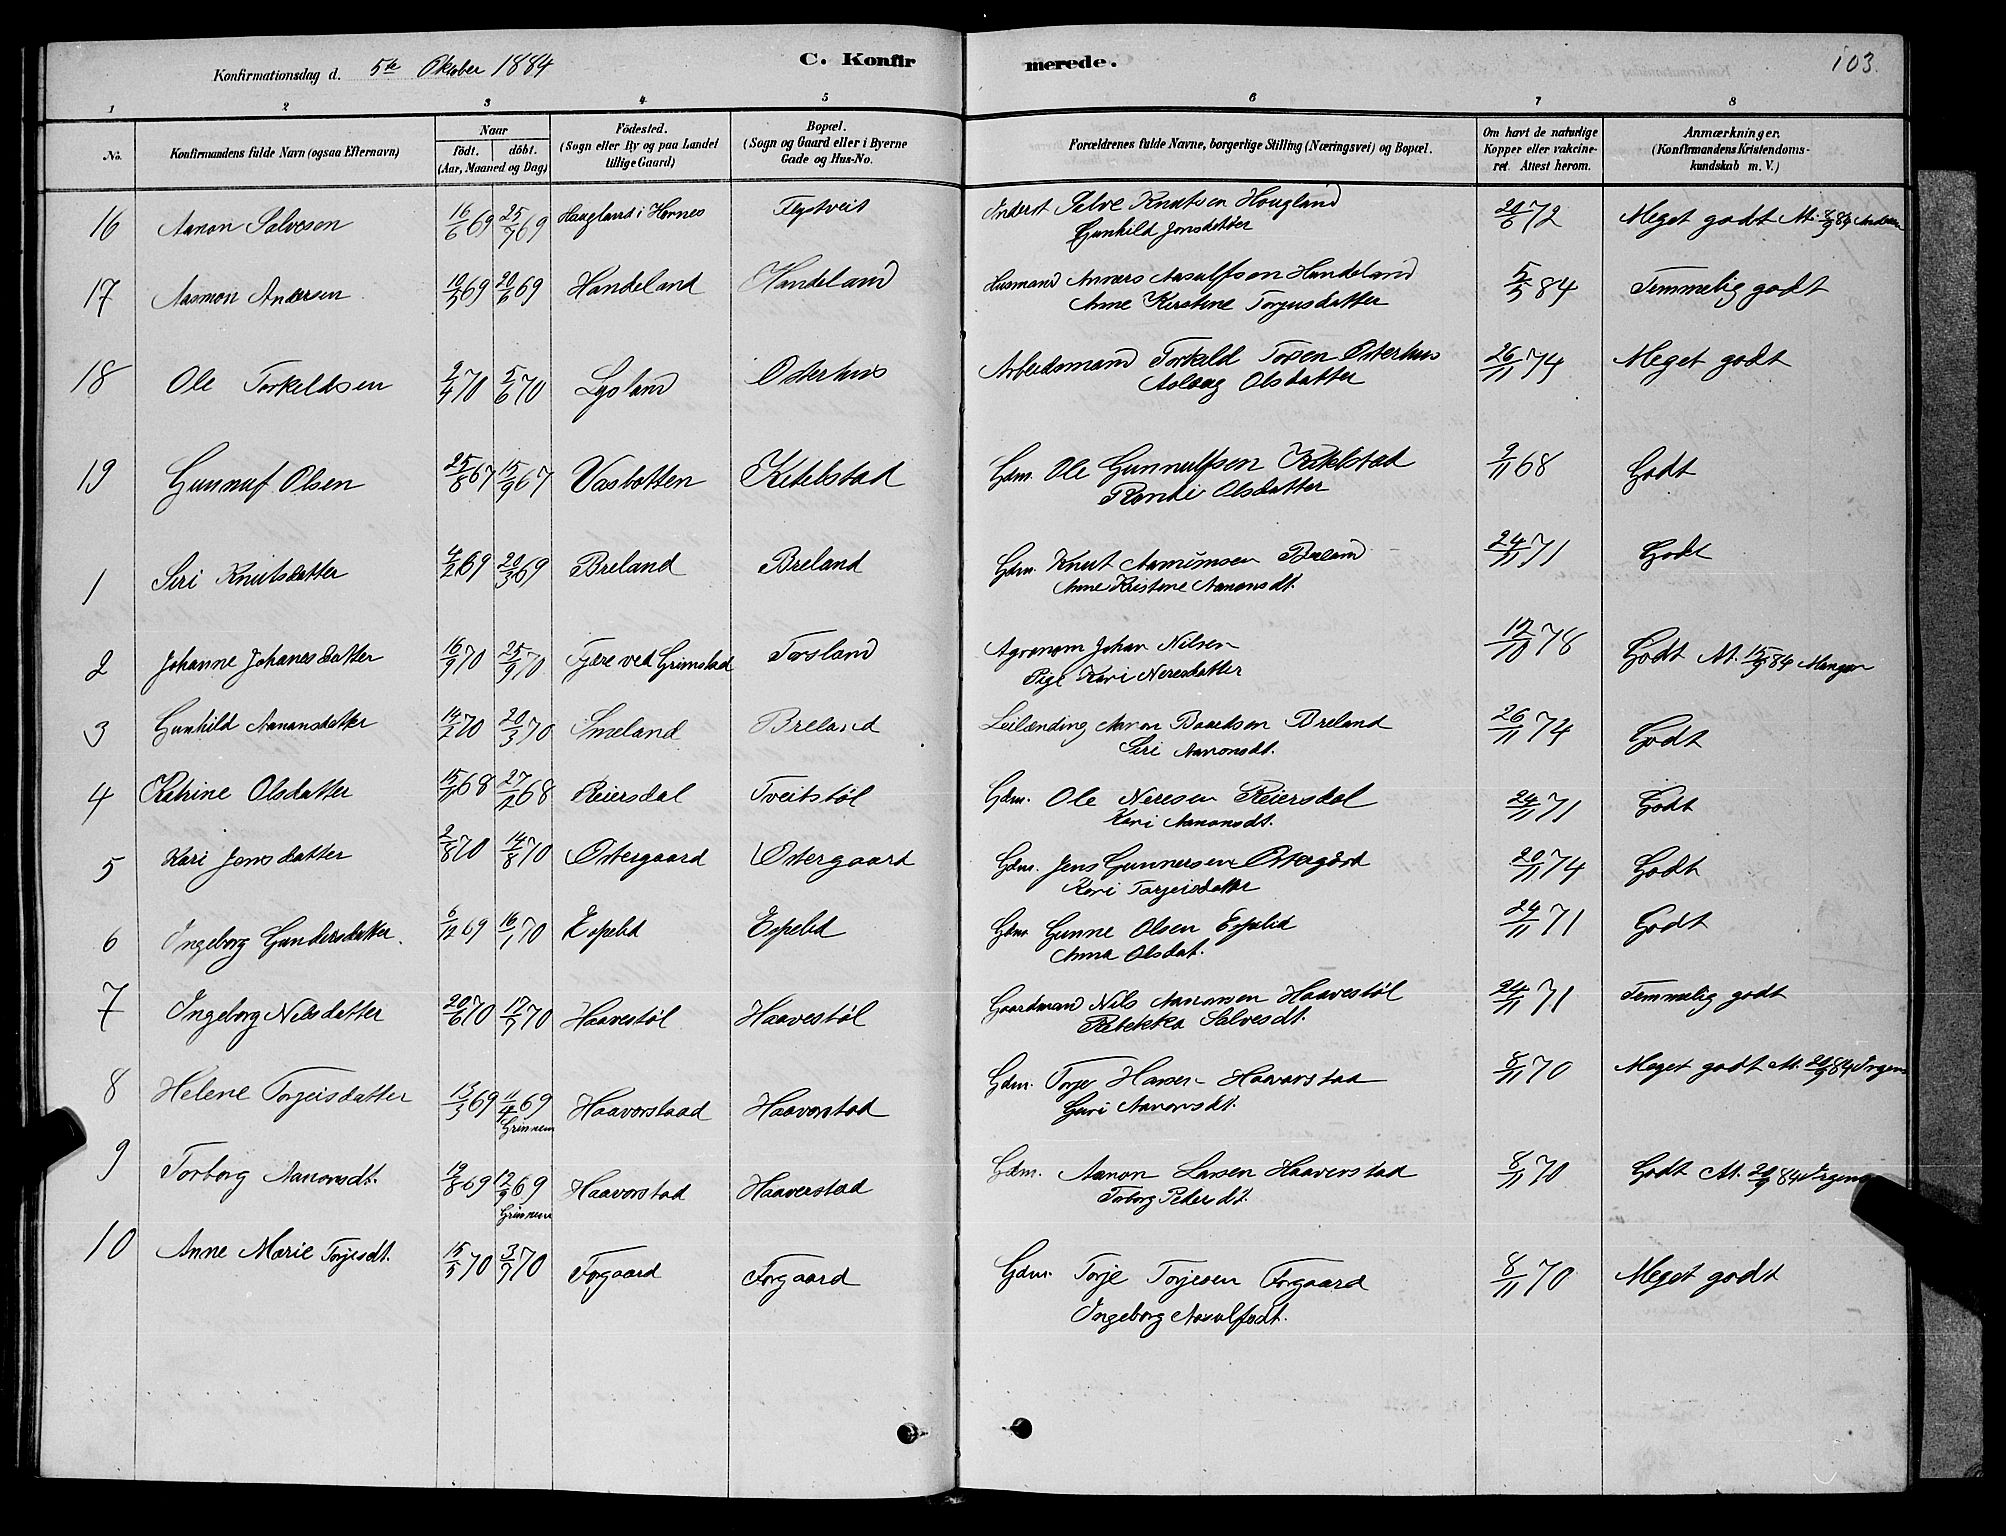 Konfirmationsdag d. 5te Oktober 1884
C. Konfirmerede.
103.
1 2 3 4 5 6 7 8
No. Konfirmandens fulde Navn (ogsaa Efternavn) Naar født. døbt. (Aar, Maaned og Dag) Fødested. (Sogn eller By og paa Landet tillige Gaard) Bopæl. (Sogn og Gaard eller i Byerne Gade og Hus-No. Forældrenes fulde Navne, borgerlige Stilling (Næringsvei) og Bopæl. Om havt de naturlige Kopper eller vakcineret. Attest herom. Anmærkninger. (Konfirmandens Kristendomskundskab m. V.)
16 Aanon Salvesen 16/6 69 25/7 69 Haugland i Hornes Flystveit Inderst Salve Knutsen Hougland 20/6 72 Meget godt At. 8/9 84
Gunhild Jonsdatter
17 Aasmon Andersen 10/5 69 20/6 69 Handeland Handeland Husmand Anders Aasulfsen Handeland 5/5 84 Temmelig godt
Anne Kirstine Torjusdatter
18 Ole Torkeldsen 2/4 70 5/6 70 Lysland Osterhus Arbeidsmand Torkeld Torsen Osterhus 26/11 74 Meget godt
Aslaug Olsdatter
19 Gunnuf Olsen 25/8 67 15/9 67 Vasbotten Ketelstad Gdm. Ole Gunnulfsen Ketelstad 2/11 68 Godt
Randi Olsdatter
1 Siri Knutsdatter 4/2 69 20/3 69 Breland Breland Gdm. Knut Breland 24/11 71 Godt
Anne Kristine Aanonsdt.
2 Johanne Johanesdatter 16/9 70 25/9 70 Fjære ved Grimstad Forsland Agronom Johan Nilsen 12/10 78 Godt At. 15/9 84
Pige Kari Neresdatter
3 Gunhild Aanonsdatter 14/2 70 20/3 70 Imeland Breland Leilending Aanon Baardsen Breland 26/11 74 Godt
Siri Aanonsdt.
4 Katrine Olsdatter 15/11 68 27/12 68 Reiersdal Tveitstøl Gdm. Ole Neresen Reiersdal 24/11 71 Godt
Kari Aanonsdt.
5 Kari Jensdatter 2/8 70 14/8 70 Ostergaard Ostergaard Gdm. Jens Gunnersen Ostergård 20/11 74 Godt
Kari Torjeisdatter
6 Ingeborg Gundersdatter. 6/12 69 16/1 70 Espelid Espelid Gdm. Gunne Olsen Espelid 24/11 71 Godt
Anna Olsdat.
7 Ingeborg Nilsdatter 20/6 70 17/7 70 Haavestøl Haavestøl Gaardmand Nils Aanonsen Haavestøl 24/11 71 Temmelig godt
Rebekka Salvesdt.
8 Helene Torjeisdatter 13/3 69 11/4 69 Haavorstaad Haavorstad Gdm. Torje Hansen Haavorstad 8/11 70 Meget godt At. 20/9 84 Irgens
Grinnem Guri Aanonsdt.
9 Torborg Aanonsdt. 19/8 69 12/9 69 Haavorstad Haaverstad Gdm. Aanon Larsen Haaverstad 8/11 70 Godt At. 20/9 84 Irgens
Grinnem Torborg Pedersdt.
10 Anne Marie Torjesdt. 15/5 70 3/7 70 Forgaard Forgaard Gdm. Torje Torjesen Forgaard 8/11 70 Meget godt
Ingeborg Aasulfsdt.